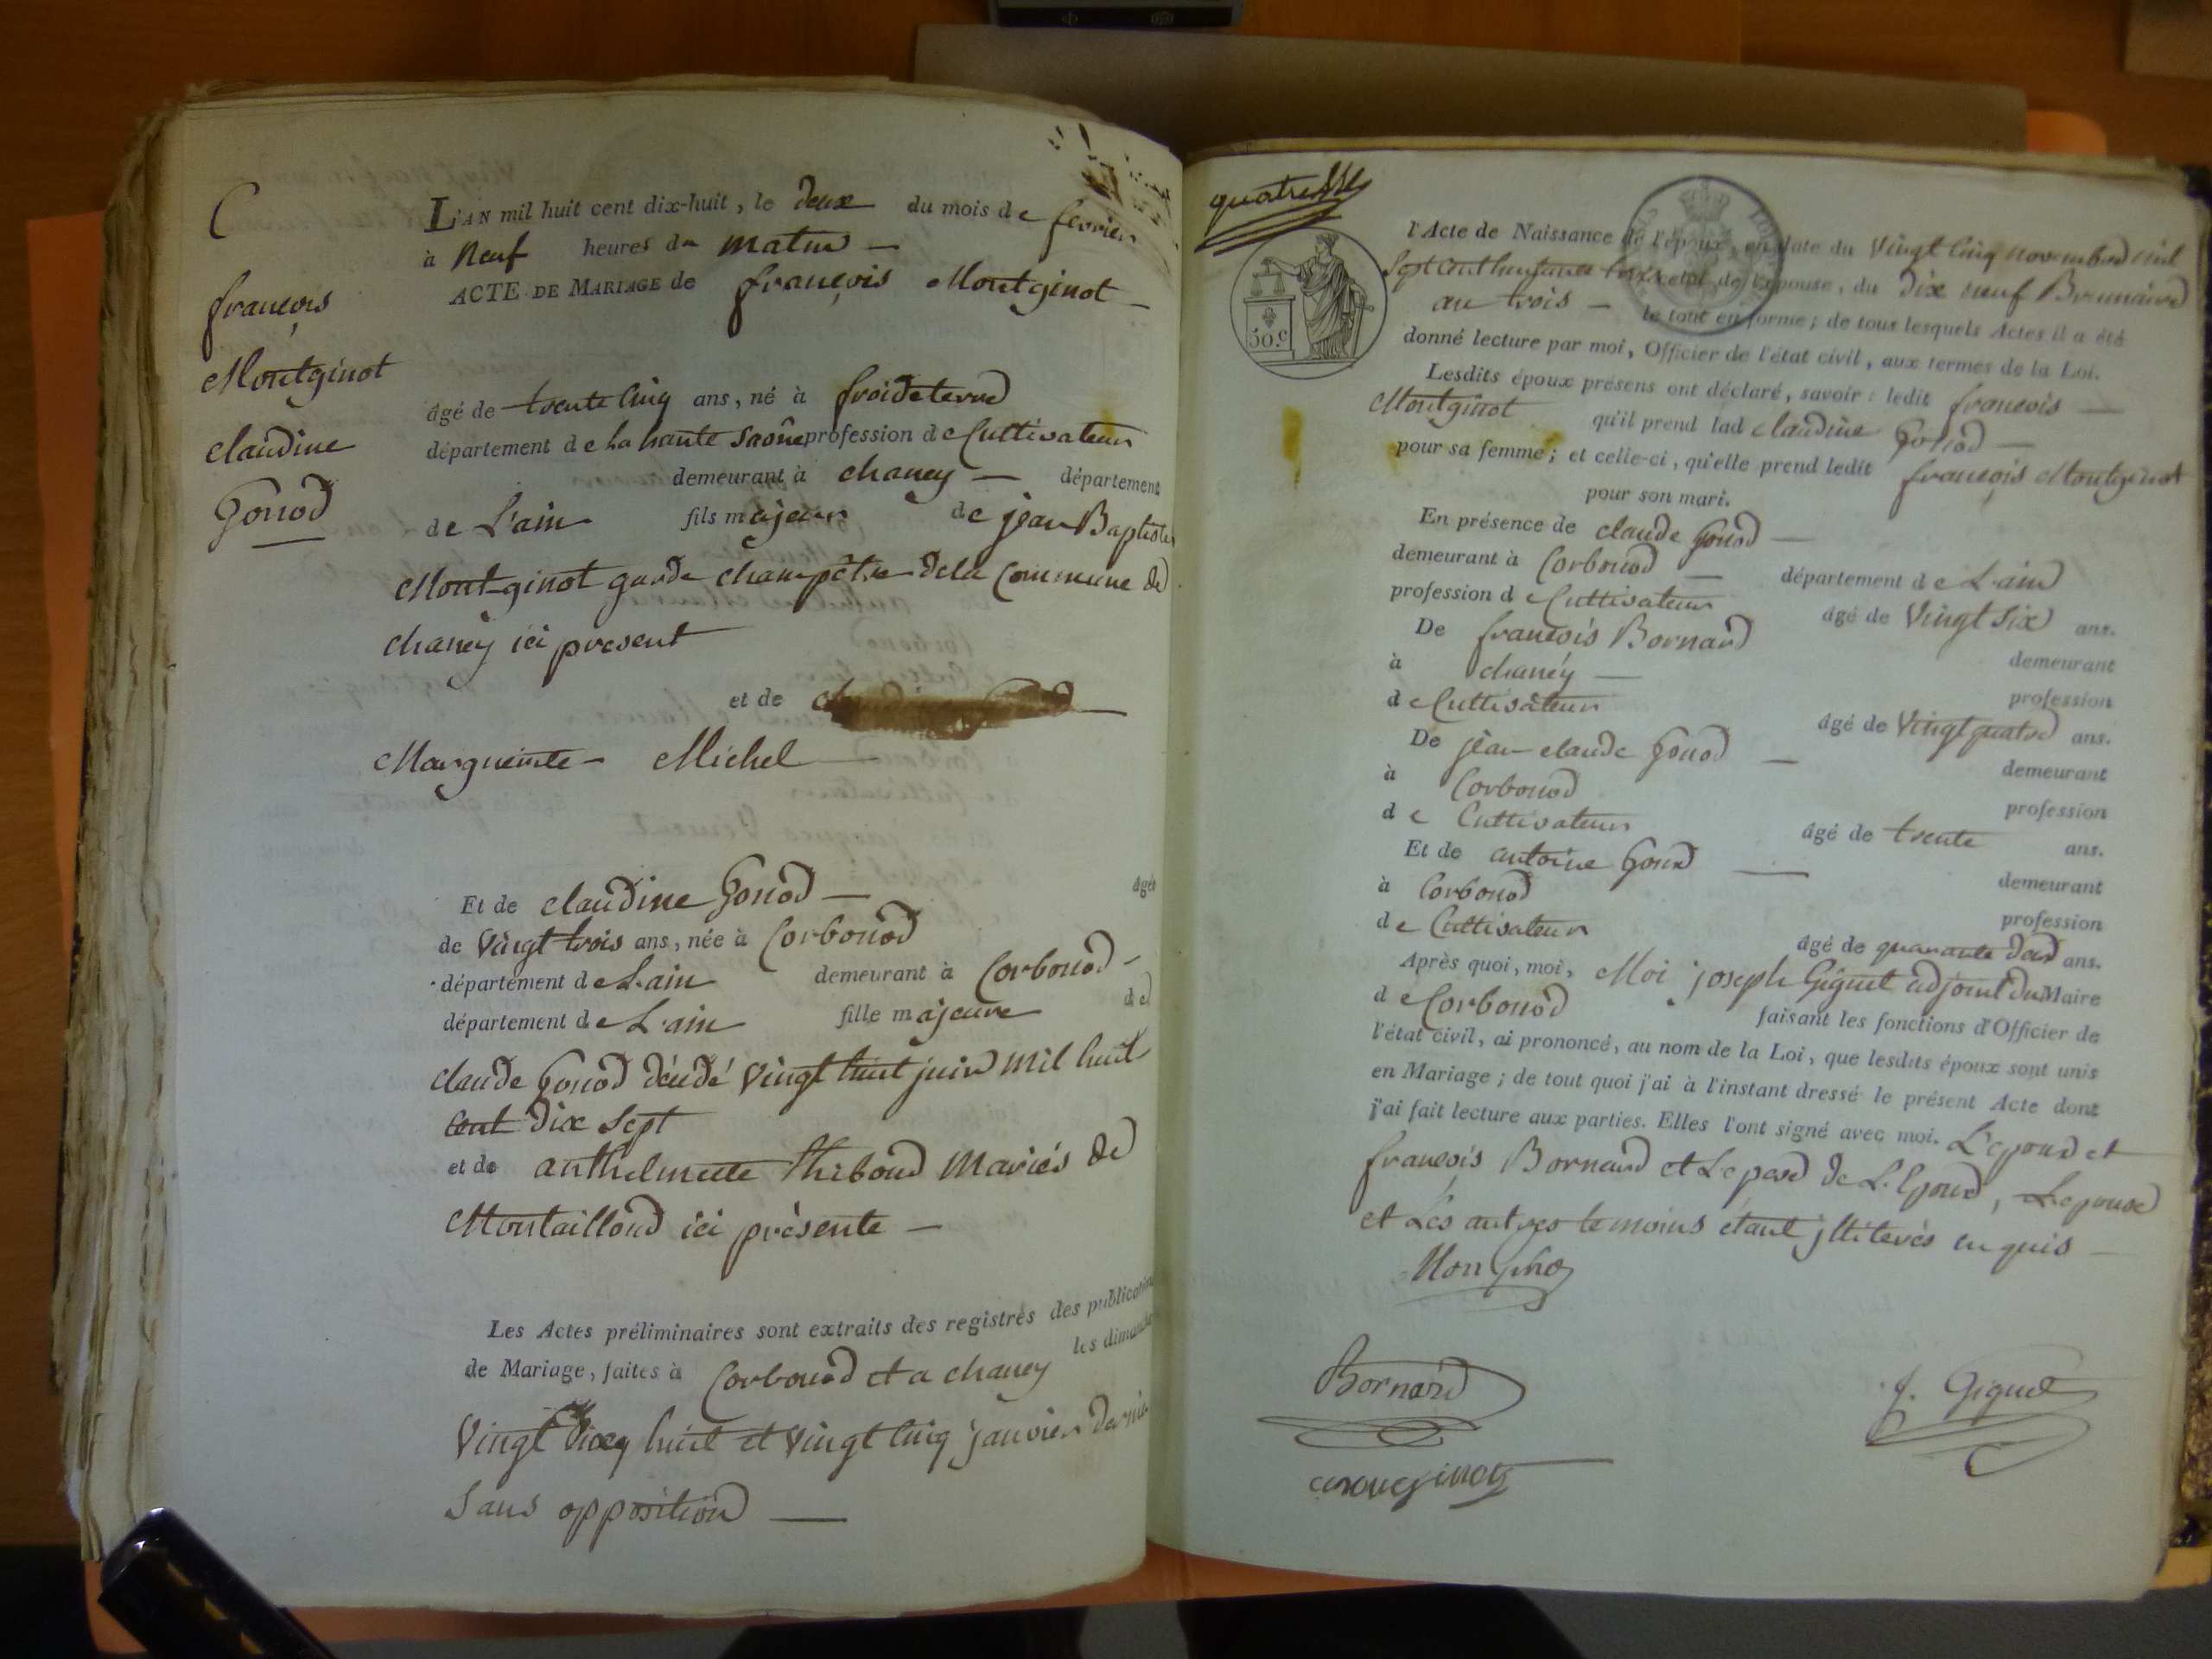 C
françois
Montginot
claudine
Gonod
L'AN mil huit cent dix-huit, le deux du mois de fevrier
à neuf heures du matin —
ACTE DE MARIAGE de françois Montginot —
âgé de trente cinq ans, né à froideterre
département de la haute Saône profession de Cultivateur
demeurant à chaney — département
de L'ain fils majeur de jean Baptiste
Montginot garde champêtre de la Commune de
chaney ici present
et de
Marguerite — Michel
Et de claudine Gonod — âgée
de vingt trois ans, née à Corbonod
département de L'ain demeurant à Corbonod —
département de L'ain fille majeure de
claude Gonod décédé vingt huit juin mil huit
cent dix sept
et de anthelmette thiboud mariés de
Montailloud ici présente —
Les Actes préliminaires sont extraits des registres des publications
de Mariage, faites à Corbonod et a chaney les dimanches
huit et vingt cinq janvier dernier
Sans opposition —
l'Acte de Naissance de l'époux, en date du vingt cinq novembre mil
Sept cent et de l'épouse, du dix neuf Brumaire
an trois — le tout en forme; de tous lesquels Actes il a été
donné lecture par moi, Officier de l'état civil, aux termes de la Loi.
Lesdits époux présens ont déclaré, savoir: ledit françois —
Montginot qu'il prend lad claudine Gonod —
pour sa femme; et celle-ci, qu'elle prend ledit françois Montginot
pour son mari.
En présence de claude Gonod —
demeurant à Corbonod — département de L'ain
profession de Cultivateur âgé de vingt six ans.
De françois Bornard demeurant
à chanéy — profession
de Cultivateur âgé de vingt quatre ans.
De jean claude Gonod — demeurant
à Corbonod profession
de Cultivateur âgé de trente ans.
Et de antoine Gonod — demeurant
à Corbonod profession
de Cultivateur âgé de quarante deux ans.
Après quoi, moi, Moi joseph Giguet adjoint du Maire
de Corbonod faisant les fonctions d'Officier de
l'état civil, ai prononcé, au nom de la Loi, que lesdits époux sont unis
en Mariage; de tout quoi j'ai à l'instant dressé le présent Acte dont
j'ai fait lecture aux parties. Elles l'ont signé avec moi. L'epoux et
françois Bornard et Le pere de L'Epoux, L'epouse
et Les autres temoins étant illiterés enquis —
Monginot
Bornard
J. Giguet
50.c